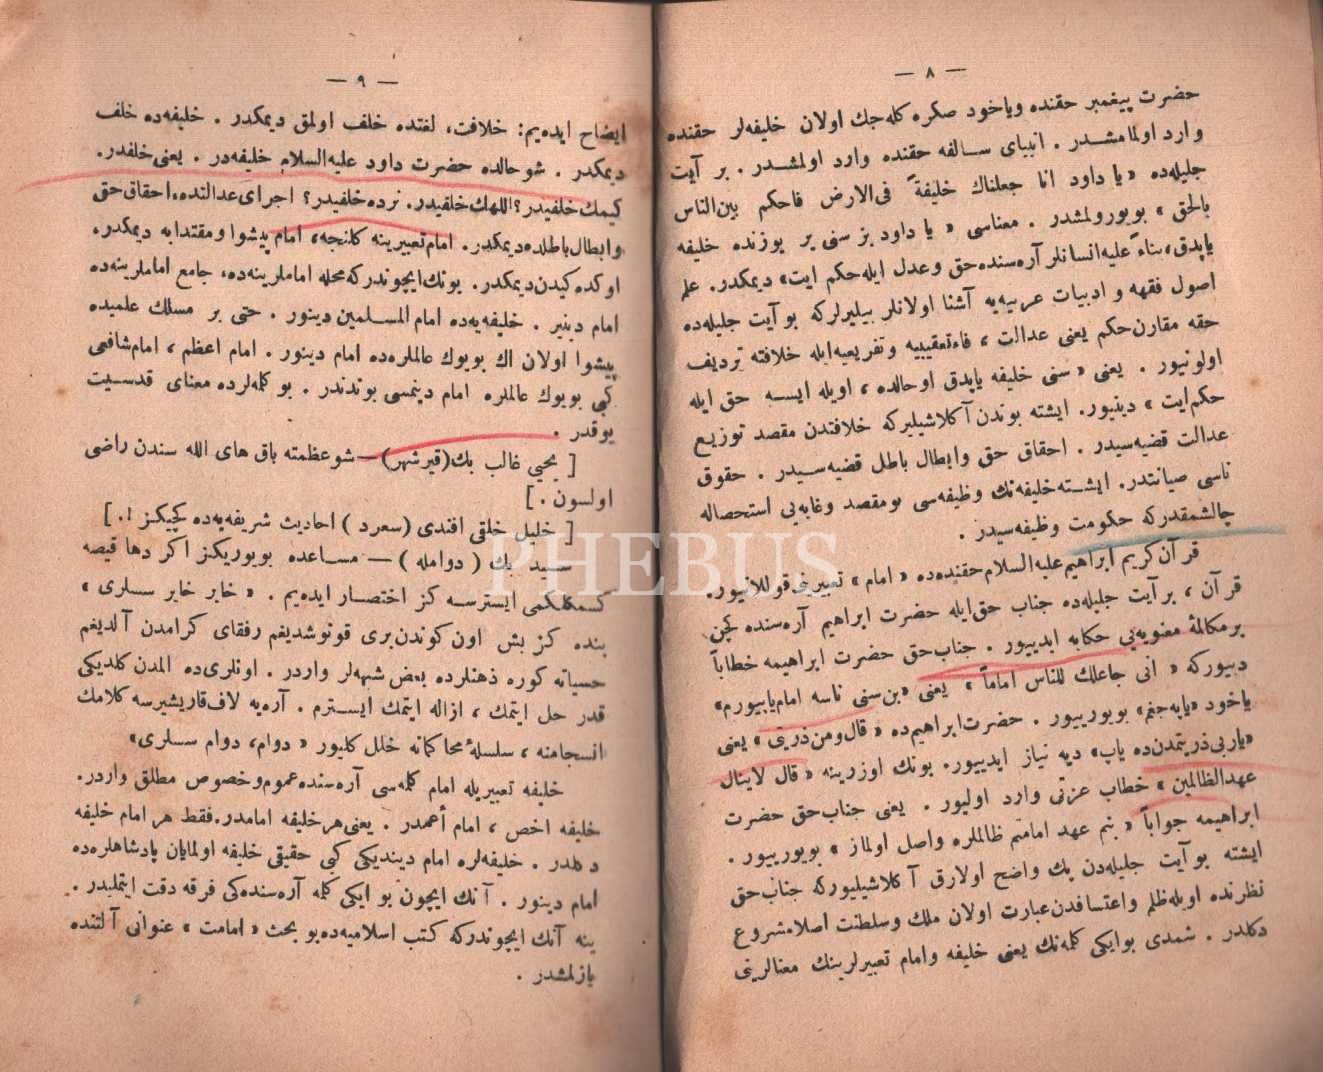 — ٨ —
حضرت پیغمبر حقنده ویاخود صكره كله‌جك اولان خلیفه‌لر حقنده
وارد اولمامشدر . انبیای سالفه حقنده وارد اولمشدر . بر آیت
جلیله‌ده « یا داود انا جعلناك خلیفةً فی‌الارض فاحكم بین‌الناس
بالحق » بویورولمشدر . معناسی « یا داود بز سنی یر یوزنده خلیفه
یاپدق، بناءً علیه‌ انسانلر آره‌سنده حق و عدل ایله حكم ایت » دیمكدر. علم
اصول فقهه و ادبیات عربیه‌یه آشنا اولانلر بیلیرلركه بو آیت جلیله‌ده
حقه مقارن حكم یعنی عدالت ، فاء تعقیبیه و تفریعیه ایله خلافته تردیف
اولونیور . یعنی « سنی خلیفه یاپدق اوحالده ، اویله ایسه حق ایله
حكم ایت » دینیور. ایشته بوندن آكلاشیلیركه خلافتدن مقصد توزیع
عدالت قضیه‌سیدر . احقاق حق وابطال باطل قضیه‌سیدر . حقوق
ناسی صیانتدر. ایشته خلیفه‌نك وظیفه‌سی بو مقصد وغایه‌یی استحصاله
چالشمقدركه حكومت وظیفه‌سیدر .
قرآن كریم ابراهیم علیه‌السلام حقنده‌ده « امام » تعبیرنی قوللانیور.
قرآن ، بر آیت جلیله‌ده جناب حق ایله حضرت ابراهیم آره‌سنده كچن
بر مكالمهٔ معنویه‌یی حكایه ایدییور . جناب حق حضرت ابراهیمه خطاباً
دیوركه « انی جاعلك للناس اماماً » یعنی « بن سنی ناسه امام یاپیورم »
یاخود « یاپه‌جغم » بویورییور . حضرت ابراهیم‌ده « قال ومن ذریتی » یعنی
« یاربی ذریتمدن‌ده یاپ » دیه نیاز ایدییور. بونك اوزرینه « قال لاینال
عهدالظالمین » خطاب عزتی وارد اولیور . یعنی جناب حق حضرت
ابراهیمه جواباً « بنم عهد امامتم ظالملره واصل اولماز » بویورییور .
ایشته بو آیت جلیله‌دن پك واضح اولارق آكلاشیلیوركه جناب حق
نظرنده اویله ظلم واعتسافدن عبارت اولان ملك وسلطنت اصلا مشروع
دكلدر . شمدی بوایكی كلمه‌نك یعنی خلیفه وامام تعبیرلرینك معنالرینی
— ٩ —
ایضاح ایده‌یم: خلافت، لغتده خلف اولمق دیمكدر . خلیفه‌ده خلف
دیمكدر . شوحالده حضرت داود علیه‌السلام خلیفه‌در . یعنی خلفدر.
كیمك خلفیدر؟ اللهك خلفیدر. نرده خلفیدر؟ اجرای عدالتده. احقاق حق
وابطال باطلده دیمكدر. امام تعبیرینه كلنجه، امام پیشوا ومقتدابه دیمكدر،
اوكده كیدن دیمكدر. بونك ایچوندركه محله اماملرینه‌ده، جامع اماملرینه‌ده
امام دینیر . خلیفه‌یه‌ده امام المسلمین دینور . حتی بر مسلك علمیده
پیشوا اولان اك بویوك عالملره‌ده امام دینور . امام اعظم ، امام شافعی
كبی بویوك عالملره امام دینمسی بوندندر . بو كلمه‌لرده معنای قدسیت
یوقدر .
[ یحیی غالب بك (قیرشهر) — شو عظمته باق های الله سندن راضی
اولسون . ]
[ خلیل خلقی افندی (سعرد) احادیث شریفه‌یه‌ده كچیكز !. ]
سید بك ( دوامله ) — مساعده بویوریكز اكر دها قیصه
كسمكلكمی ایسترسه كز اختصار ایده‌یم . « خایر خایر سسلری »
بنده كز بش اون كوندن‌بری قونوشدیغم رفقای كرامدن آلدیغم
حسیاته كوره ذهنلرده بعض شبهه‌لر واردر . اونلری‌ده المدن كلدیكی
قدر حل ایتمك ، ازاله ایتمك ایسترم . آره‌یه لاف قاریشیرسه كلامك
انسجامنه ، سلسلهٔ محاكماته خلل كلیور « دوام، دوام سسلری »
خلیفه تعبیریله امام كلمه‌سی آره‌سنده عموم وخصوص مطلق واردر.
خلیفه اخص ، امام أعمدر . یعنی هر خلیفه امامدر. فقط هر امام خلیفه
دكلدر . خلیفه‌لره امام دیندیكی كبی حقیقی خلیفه اولمایان پادشاهلره‌ده
امام دینور . آنك ایچون بو ایكی كلمه آره‌سنده‌كی فرقه دقت ایتملیدر .
ینه آنك ایچوندركه كتب اسلامیه‌ده بو بحث « امامت » عنوانی آلتنده
یازلمشدر .
PHEBUS